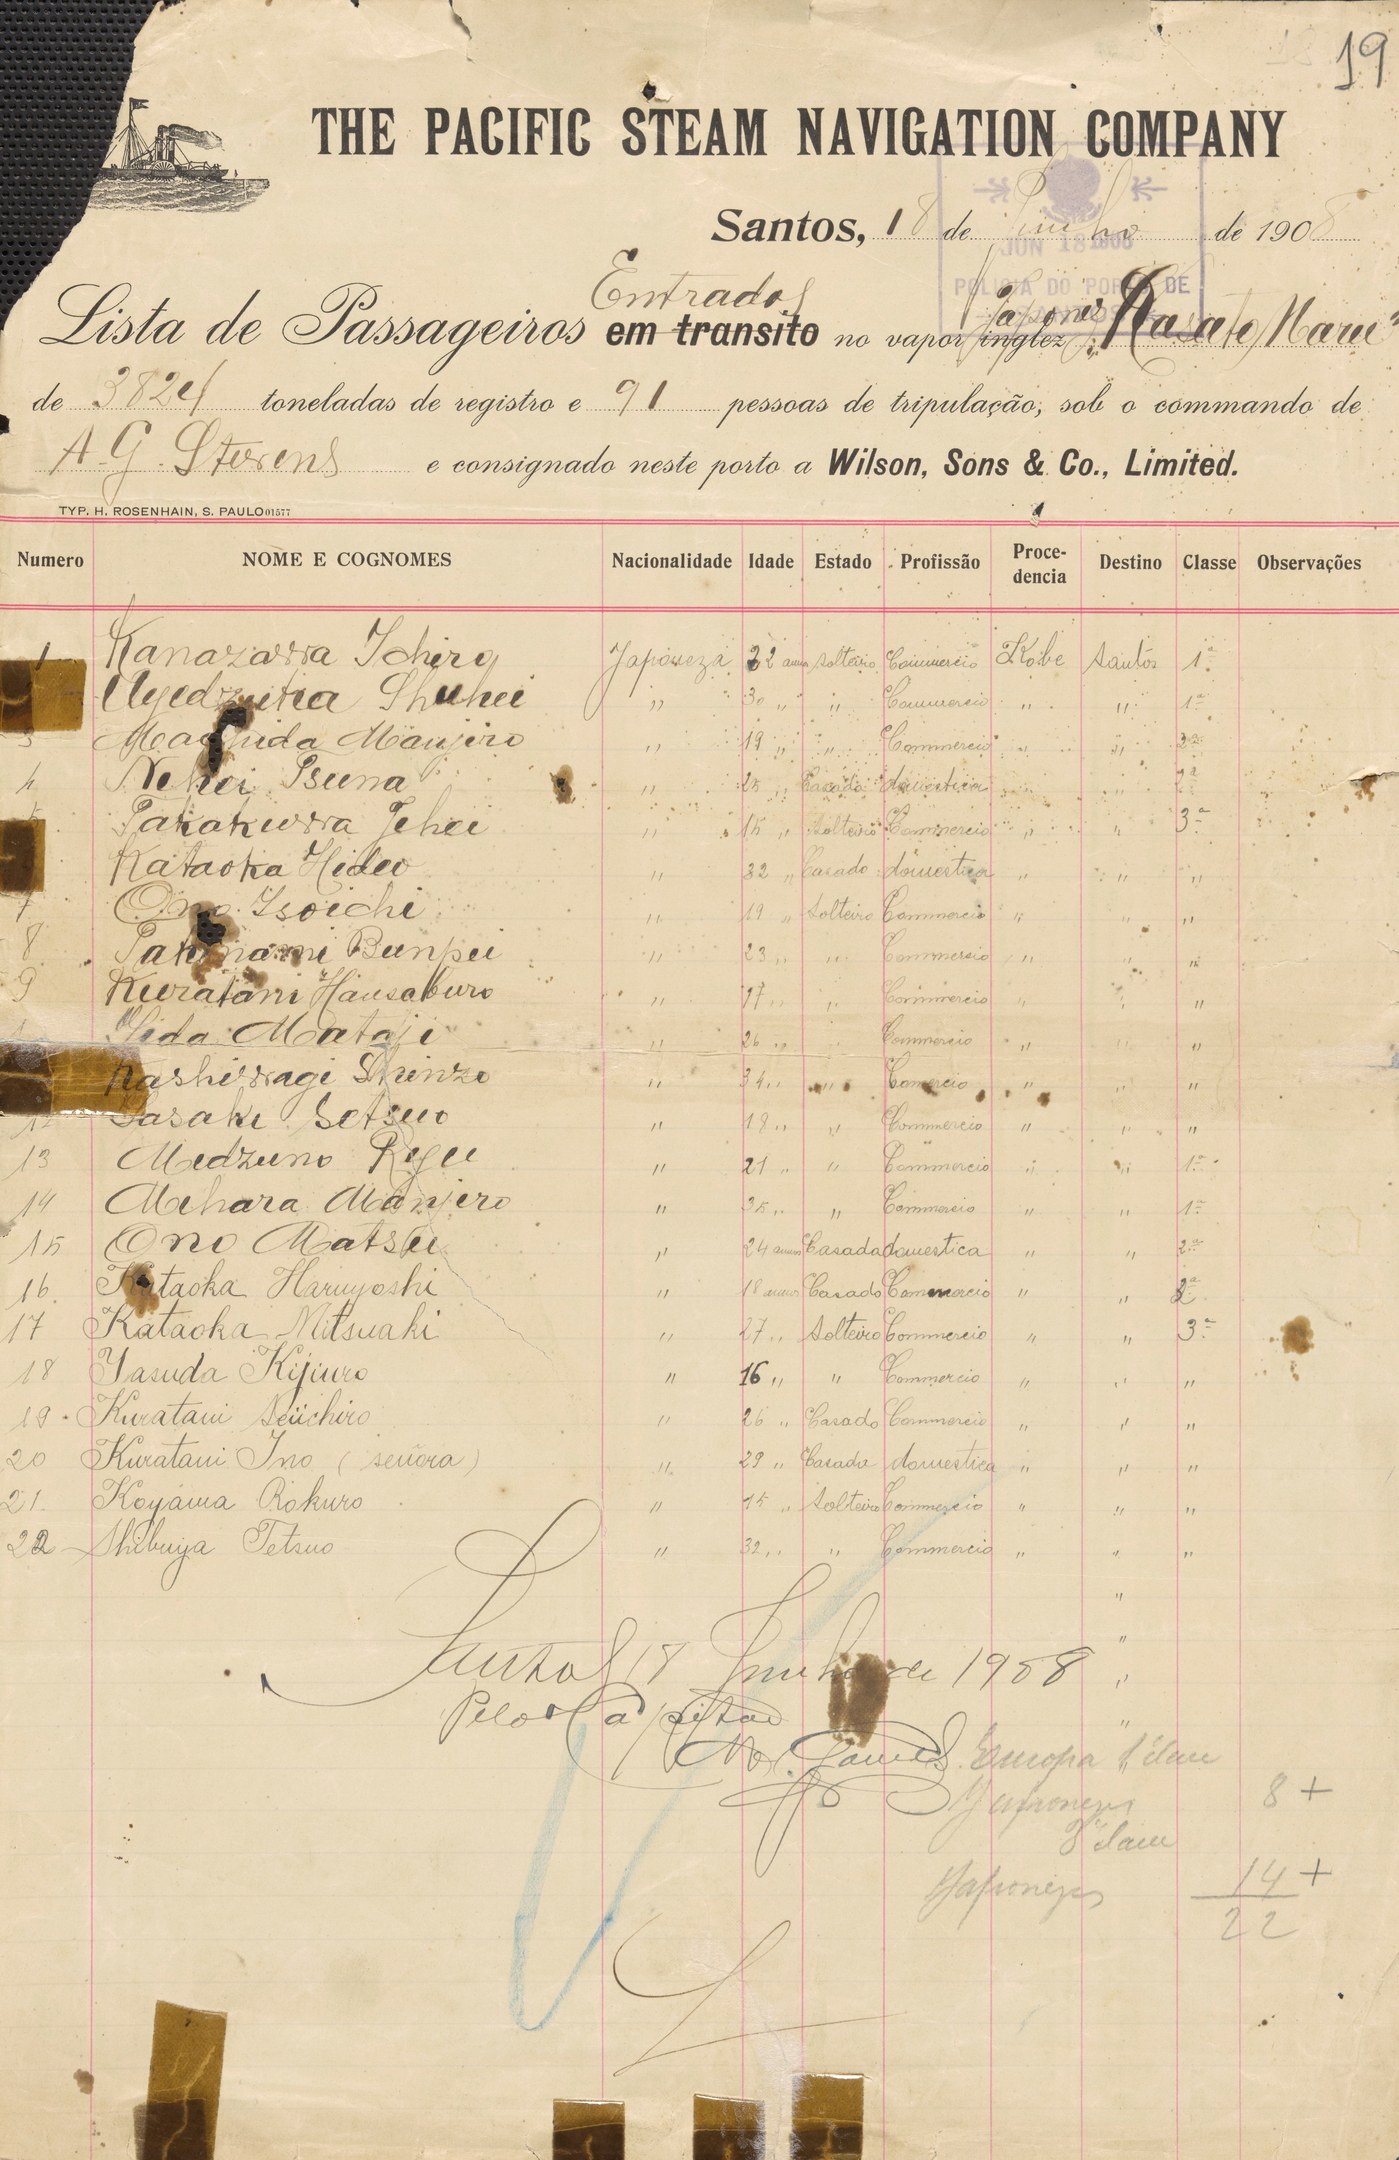 19
THE PACIFIC STEAM NAVIGATION COMPANY
Santos, 18 de Junho de 1908
JUN 18 1908
POLICIA DO PORTO DE
SANTOS
Entrados
Lista de Passageiros em transito no vapor inglez Japones "Kasato Maru"
de 3824 toneladas de registro e 91 pessoas de tripulação, sob o commando de
A. G. Stevens e consignado neste porto a Wilson, Sons & Co., Limited.
TYP. H. ROSENHAIN, S. PAULO 01577
Numero NOME E COGNOMES Nacionalidade Idade Estado Profissão Proce-dencia Destino Classe Observações
1 Kanazawa Ichiro Japoneza 22 annos solteiro Commercio Kobe Santos 1ª
Uyedzuka Shuhei " 30 " " Commercio " " 1ª
3 Manjiro " 19 " " Commercio " " 2ª
4 Nehei Tsuna " 25 " Casado domestica " " 2ª
Takakuwa Jehei " 15 " Solteiro Commercio " " 3ª
Kataoka Hideo " 32 " Casado domestica " " "
7 Ono Isoichi " 19 " Solteiro Commercio " " "
8 Takinami Bunpei " 23 " " Commercio " " "
9 Kuratani Hausaburo " 17 " " Commercio " " "
Iida Mataji " 26 " " Commercio " " "
Kashiwagi Shinzo " 34 " " Comercio " " "
12 Sasaki Setsuo " 19 " " Commercio " " "
13 Midzuno Ryu " 21 " " Commercio " " 1ª
14 Mihara Manjero " 35 " " Commercio " " 1ª
15 Ono Matsu " 24 annos Casada domestica " " 2ª
16. Kataoka Haruyoshi " 18 annos Casado Commercio " " 2ª
17 Kataoka Mitsuaki " 27 " Solteiro Commercio " " 3ª
18 Yasuda Kijiuro " 16 " " Commercio " " "
19. Kuratani Seiichiro " 26 " Casado Commercio " " "
20 Kuratani Ino (señora) " 29 " Casada domestica " " "
21. Koyama Rokuro " 15 " Solteiro Commercio " " "
22 Shibuya Tetsuo " 32 " " Commercio " " "
"
"
Santos 18 Junho de 1908 "
Pelo Capitão "
Europa 1ª clase
Japonezes 8 +
3ª clase
Japonezes 14 +
22